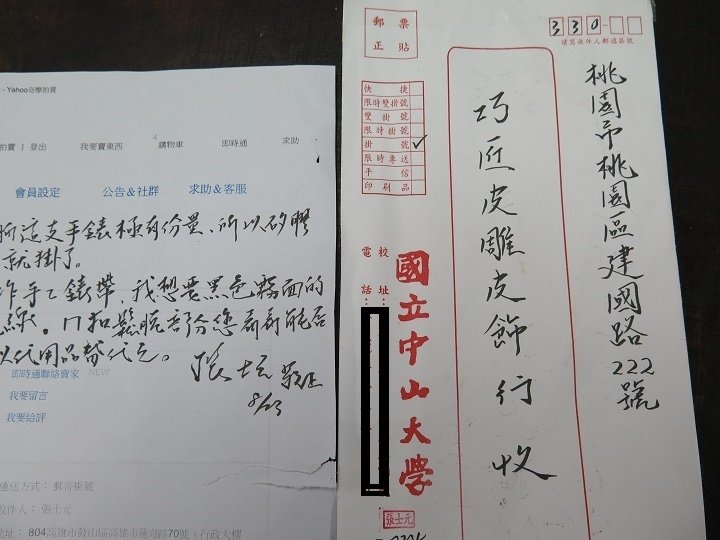 - Yahoo奇摩拍賣
拍賣 | 登出 我要賣東西 購物車 即時通 求助
會員設定 公告&社群 求助&客服
這支手錶極有份量、所以矽膠
就掛了。
作手工錶帶、我想要黑色霧面的
線。ㄇ扣鬆脫部份您看看能否
以代用品替代之。
張士元 敬上
8/23
即時通聯絡賣家 NEW
我要留言
我要給評
運送方式： 郵寄掛號
收件人： 張士元
地址： 804高雄市鼓山區高雄市蓮海路70號（行政大樓
郵票
正貼
330
請寫收件人郵遞區號
快捷
限時雙掛號
雙掛號
限時掛號
掛號 ✓
限時專送
平信
印刷品
桃園市桃園區建國路222號
巧匠皮雕皮飾行 收
國立中山大學
校址：
電話：
張士元